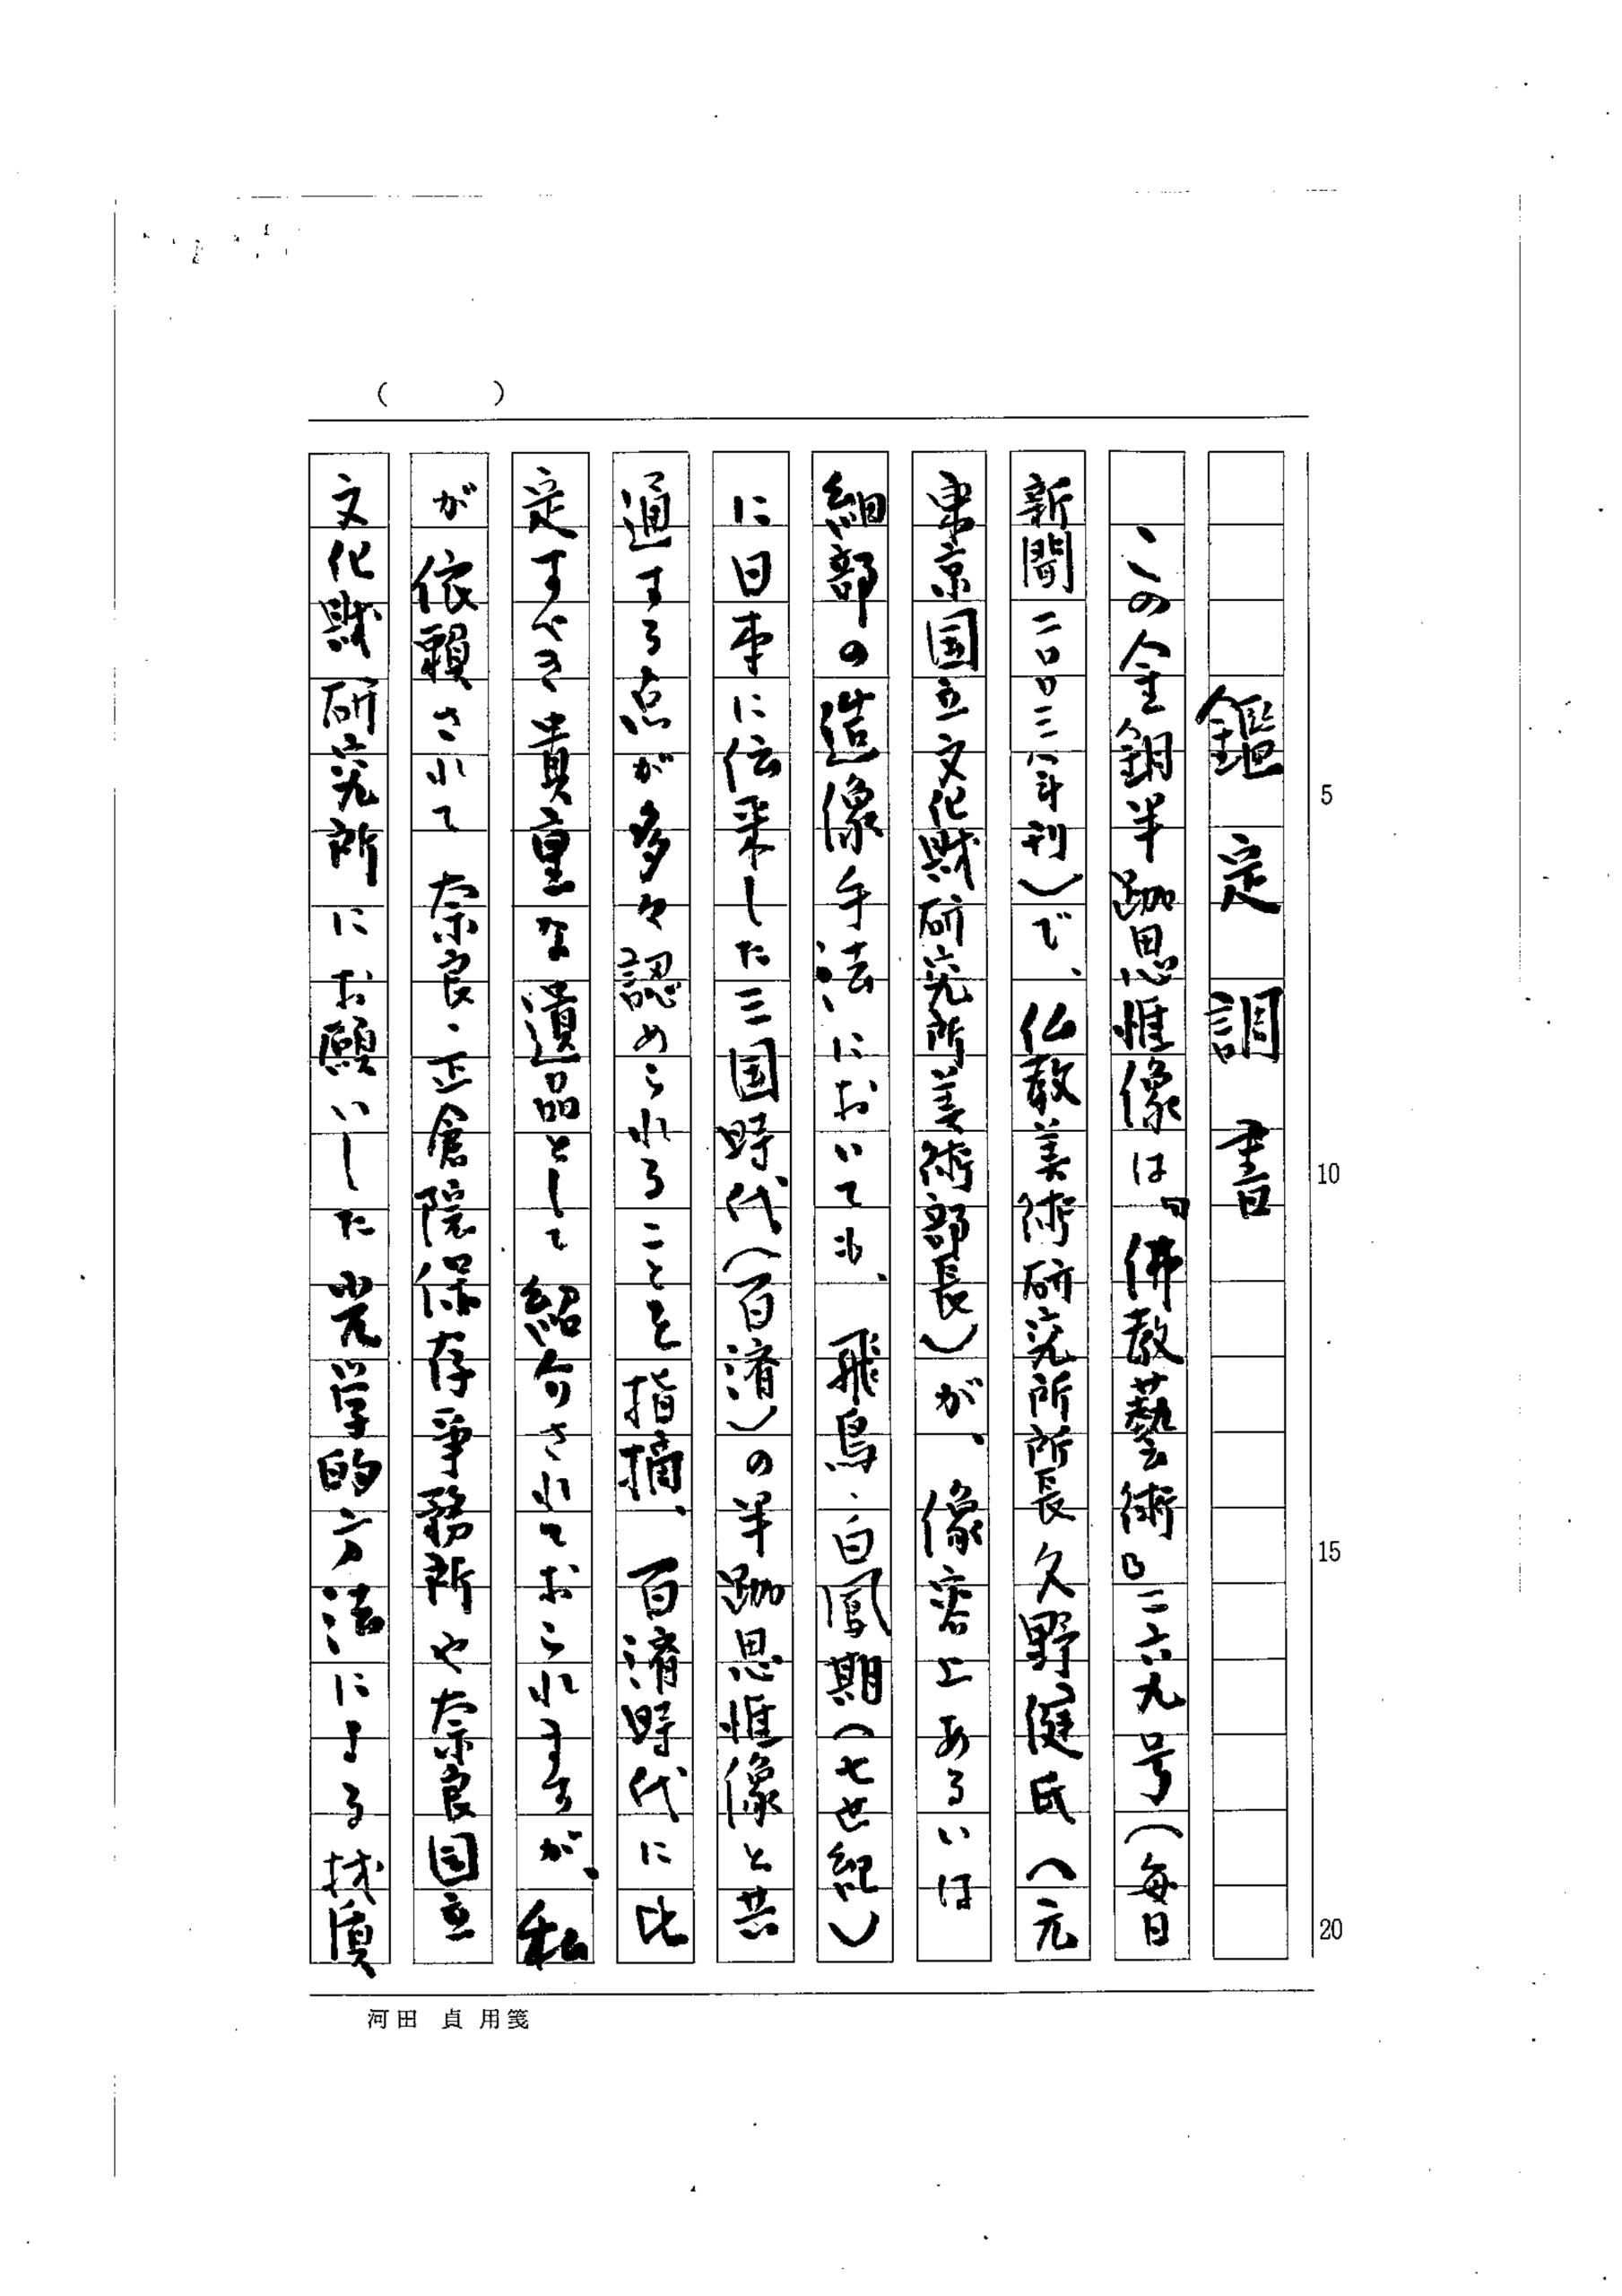 鑑定調書
この金銅半跏思惟像は『佛教藝術』二六九号（毎日
新聞二〇〇三年刊）で、仏教美術研究所所長久野健氏（元
東京国立文化財研究所美術部長）が、像容上あるいは
細部の造像手法においても、飛鳥・白鳳期（七世紀）
に日本に伝来した三国時代（百済）の半跏思惟像と共
通する点が多々認められることを指摘、百済時代に比
定すべき貴重な遺品として紹介されておられますが、私
が依頼されて奈良・正倉院保存事務所や奈良国立
文化財研究所にお願いした光学的方法による材質
5
10
15
20
(　　)
河田 貞 用箋